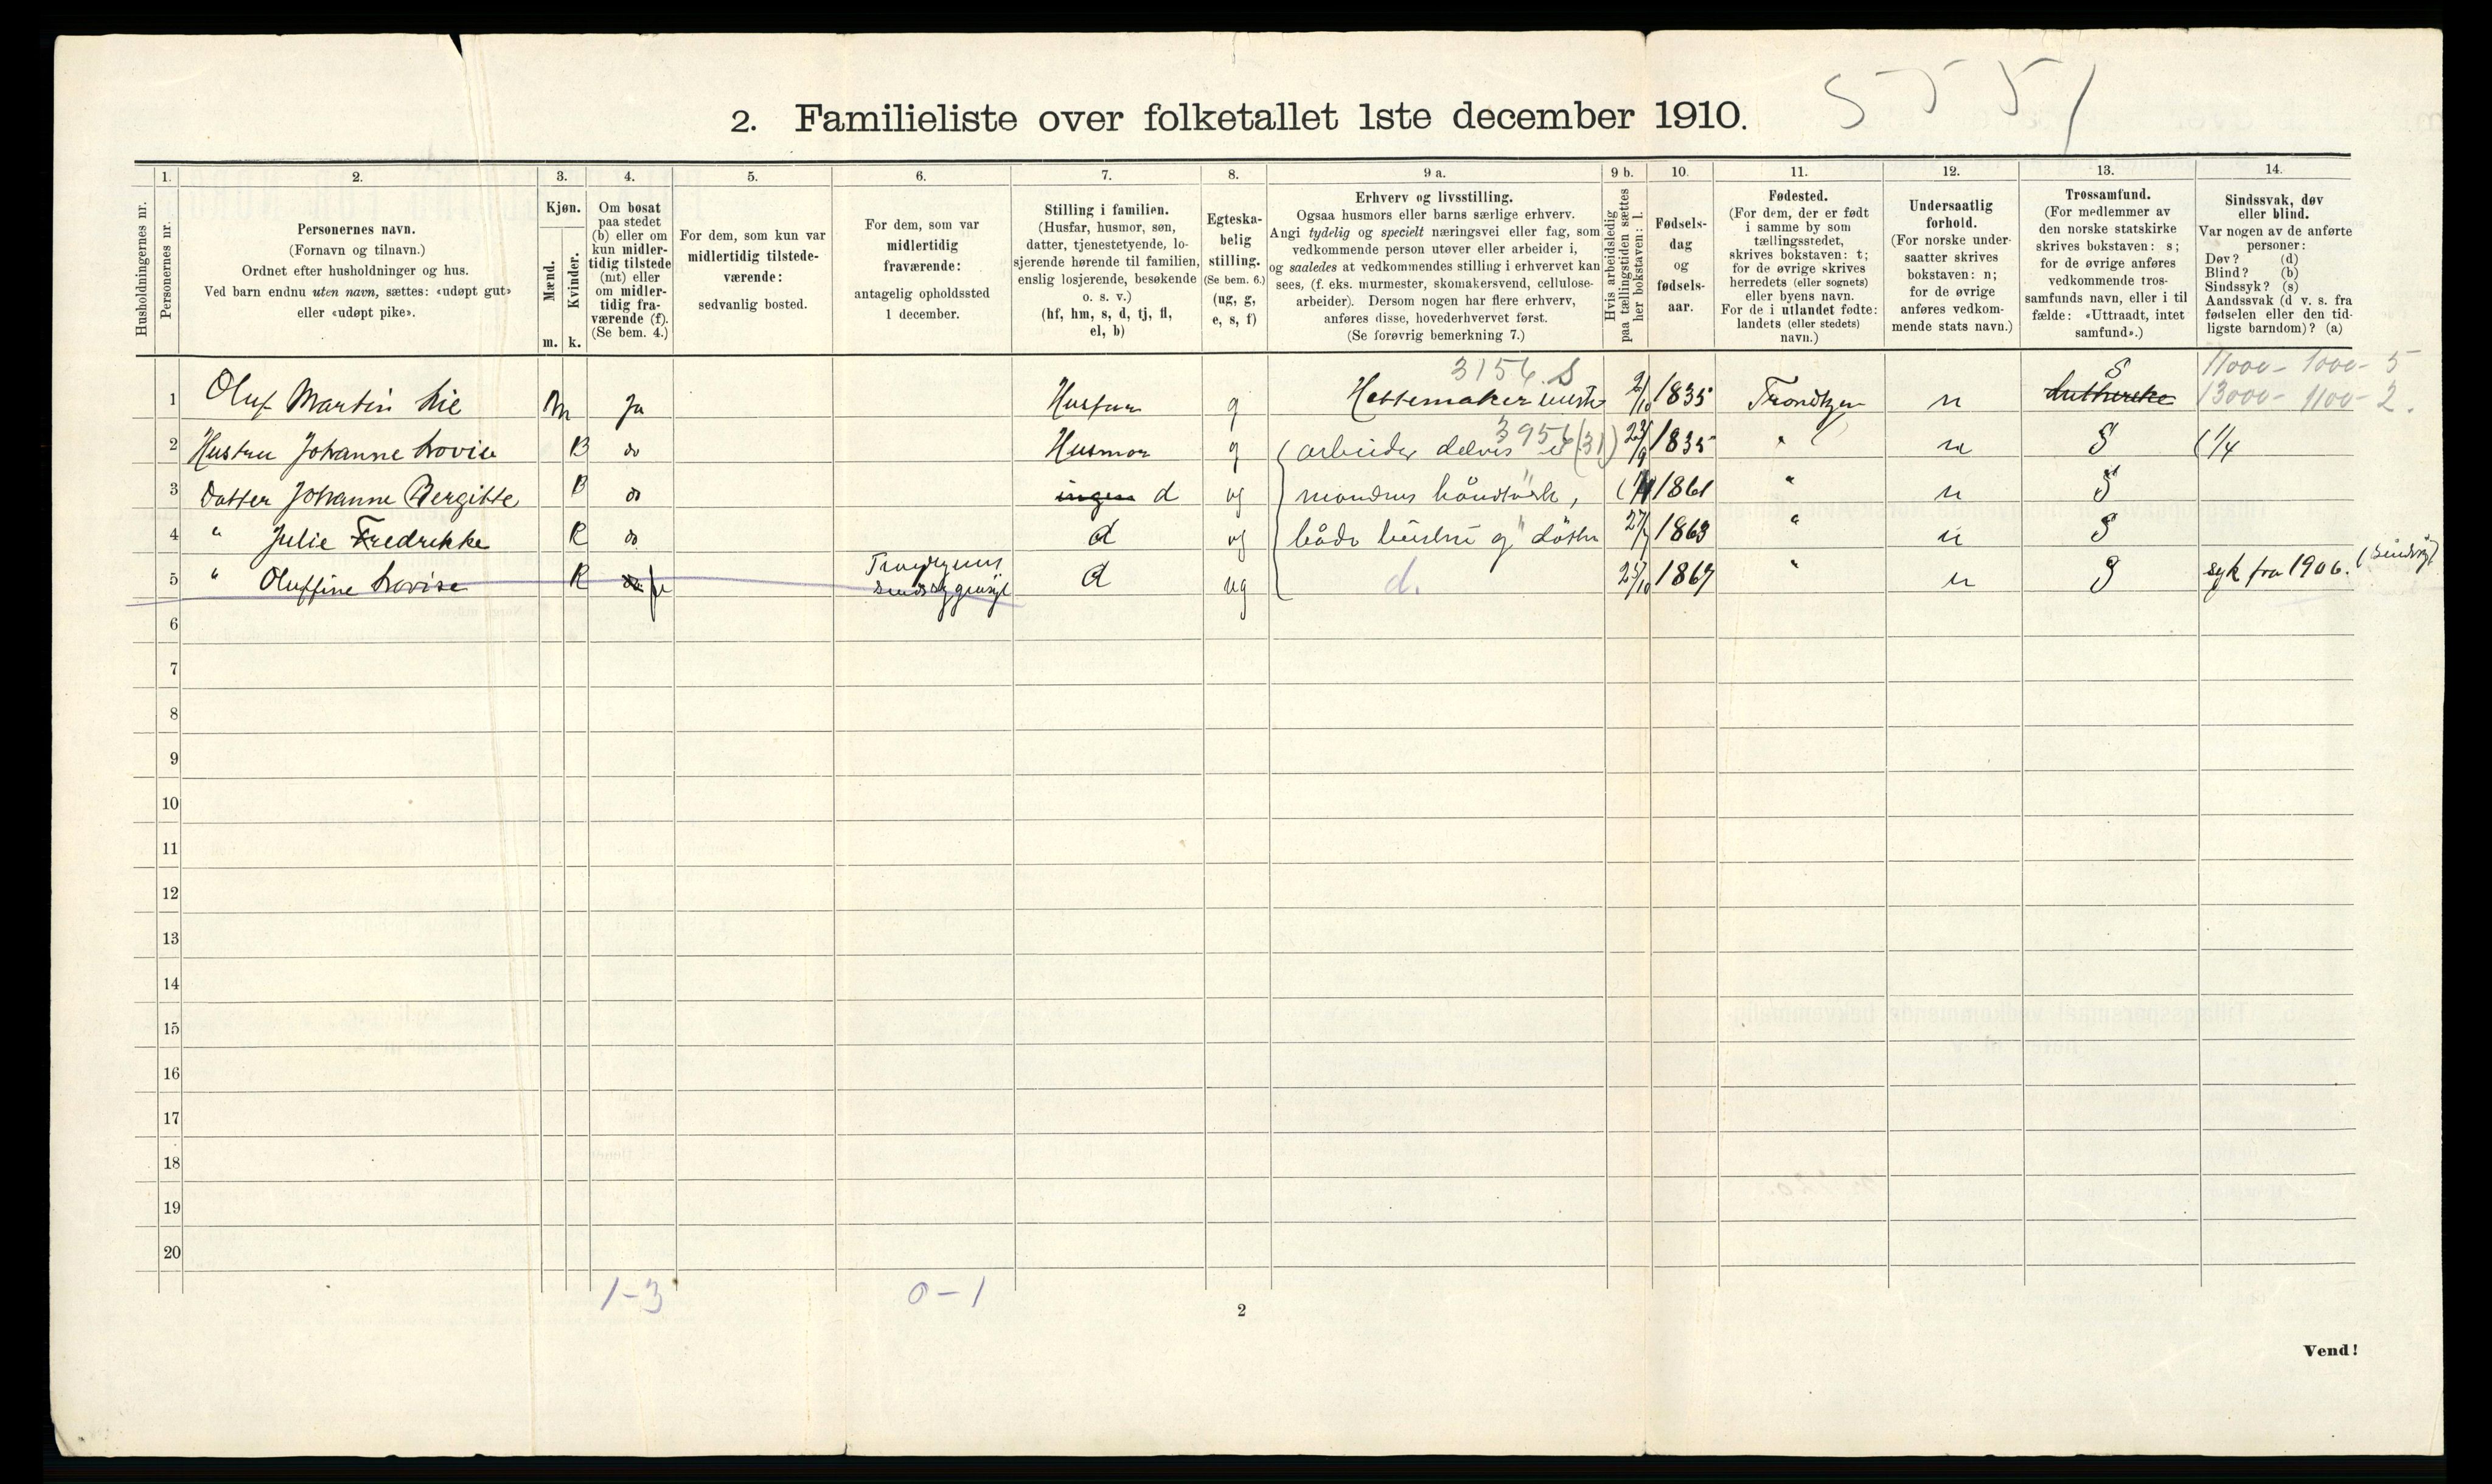 5551
2. Familieliste over folketallet 1ste december 1910.
Husholdningernes nr.
1.
Personernes nr.
2.
Personernes navn.
(Fornavn og tilnavn.)
Ordnet efter husholdninger og hus.
Ved barn endnu uten navn, sættes: «udøpt gut»
eller «udøpt pike».
3.
Kjøn.
Mænd.
Kvinder.
m. k.
4.
Om bosat
paa stedet
(b) eller om
kun midler-
tidig tilstede
(mt) eller
om midler-
tidig fra-
værende (f).
(Se bem. 4.)
5.
For dem, som kun var
midlertidig tilstede-
værende:
sedvanlig bosted.
6.
For dem, som var
midlertidig
fraværende:
antagelig opholdssted
1 december.
7.
Stilling i familien.
(Husfar, husmor, søn,
datter, tjenestetyende, lo-
sjerende hørende til familien,
enslig losjerende, besøkende
o. s. v.)
(hf, hm, s, d, tj, fl,
el, b)
8.
Egteska-
belig
stilling.
(Se bem. 6.)
(ug, g,
e, s, f)
9 a.
Erhverv og livsstilling.
Ogsaa husmors eller barns særlige erhverv.
Angi tydelig og specielt næringsvei eller fag, som
vedkommende person utøver eller arbeider i,
og saaledes at vedkommendes stilling i erhvervet kan
sees, (f. eks. murmester, skomakersvend, cellulose-
arbeider). Dersom nogen har flere erhverv,
anføres disse, hovederhvervet først.
(Se forøvrig bemerkning 7.)
9 b.
Hvis arbeidsledig
paa tællingstiden sættes
her bokstaven: l.
10.
Fødsels-
dag
og
fødsels-
aar.
11.
Fødested.
(For dem, der er født
i samme by som
tællingsstedet,
skrives bokstaven: t;
for de øvrige skrives
herredets (eller sognets)
eller byens navn.
For de i utlandet fødte:
landets (eller stedets)
navn.)
12.
Undersaatlig
forhold.
(For norske under-
saatter skrives
bokstaven: n;
for de øvrige
anføres vedkom-
mende stats navn.)
13.
Trossamfund.
(For medlemmer av
den norske statskirke
skrives bokstaven: s;
for de øvrige anføres
vedkommende tros-
samfunds navn, eller i til
fælde: «Uttraadt, intet
samfund».)
14.
Sindssvak, døv
eller blind.
Var nogen av de anførte
personer:
Døv? (d)
Blind? (b)
Sindssyk? (s)
Aandssvak (d v. s. fra
fødselen eller den tid-
ligste barndom)? (a)
3156. S S 11000 - 1000 - 5
1 Oluf Martin Lie M Ja Husfar g 2/10 1835 Trondhjem n Lutherske 13000 - 1100 - 2.
2 Hustru Johanne Lovise B do Husmor g (arbeider delvis i 3956 (31) 23/9 1835 " n S (1/4
3 Datter Johanne Bergitte B do ingen d ug mandens håndværk, 1861 " n S
4 " Julie Fredrikke K do d ug både hustru og døtre 27/ 1863 " n S
5 " Oluffine Lovise K f Trondhjems sindssygeasyl d ug d. 25/10 1867 " n S syk fra 1906. (sindssyg)
6
7
8
9
10
11
12
13
14
15
16
17
18
19
20
1-3 0-1
2
Vend!